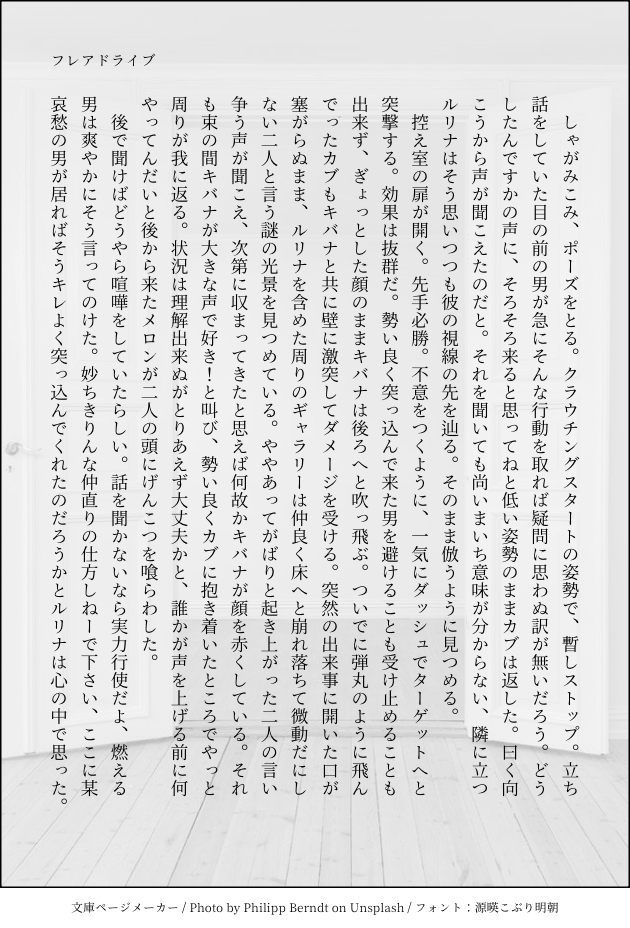 フレアドライブ
　しゃがみこみ、ポーズをとる。クラウチングスタートの姿勢で、暫しストップ。立ち
話をしていた目の前の男が急にそんな行動を取れば疑問に思わぬ訳が無いだろう。どう
したんですかの声に、そろそろ来ると思ってねと低い姿勢のままカブは返した。曰く向
こうから声が聞こえたのだと。それを聞いても尚いまいち意味が分からない、隣に立つ
ルリナはそう思いつつも彼の視線の先を辿る。そのまま倣うように見つめる。
　控え室の扉が開く。先手必勝。不意をつくように、一気にダッシュでターゲットへと
突撃する。効果は抜群だ。勢い良く突っ込んで来た男を避けることも受け止めることも
出来ず、ぎょっとした顔のままキバナは後ろへと吹っ飛ぶ。ついでに弾丸のように飛ん
でったカブもキバナと共に壁に激突してダメージを受ける。突然の出来事に開いた口が
塞がらぬまま、ルリナを含めた周りのギャラリーは仲良く床へと崩れ落ちて微動だにし
ない二人と言う謎の光景を見つめている。ややあってがばりと起き上がった二人の言い
争う声が聞こえ、次第に収まってきたと思えば何故かキバナが顔を赤くしている。それ
も束の間キバナが大きな声で好き！と叫び、勢い良くカブに抱き着いたところでやっと
周りが我に返る。状況は理解出来ぬがとりあえず大丈夫かと、誰かが声を上げる前に何
やってんだいと後から来たメロンが二人の頭にげんこつを喰らわした。
　後で聞けばどうやら喧嘩をしていたらしい。話を聞かないなら実力行使だよ、燃える
男は爽やかにそう言ってのけた。妙ちきりんな仲直りの仕方しねーで下さい、ここに某
哀愁の男が居ればそうキレよく突っ込んでくれたのだろうかとルリナは心の中で思った。
文庫ページメーカー / Photo by Philipp Berndt on Unsplash / フォント：源暎こぶり明朝